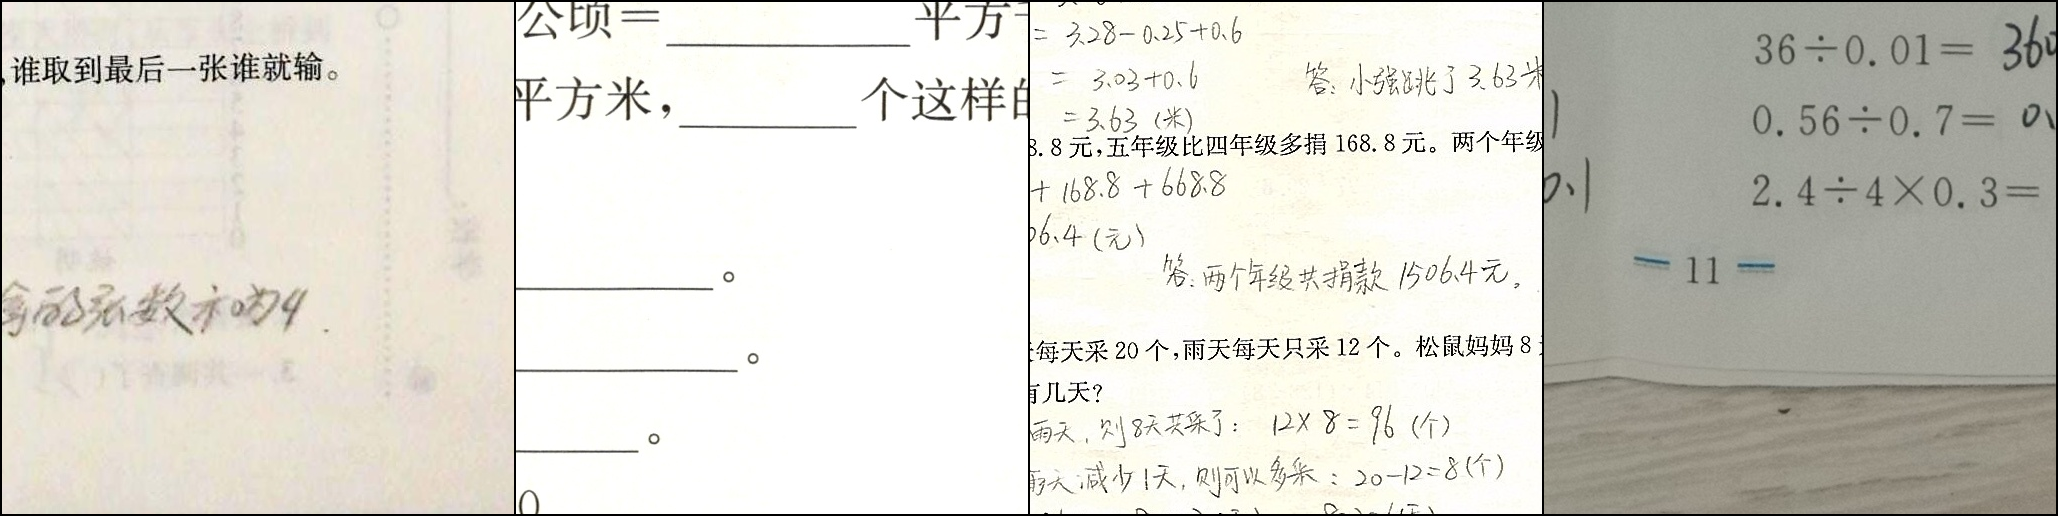 ,谁取到最后一张谁就输。
公顷=________平方
平方米,________个这样的
________。
________。
________。
= 3.28-0.25+0.6
= 3.03+0.6
答:小强跳了3.63米
=3.63 (米)
8.8元,五年级比四年级多捐168.8元。两个年级
+ 168.8 + 668.8
06.4 (元)
答:两个年级共捐款1506.4元。
每天采20个,雨天每天只采12个。松鼠妈妈8
有几天?
雨天,则8天共采了: 12×8=96 (个)
雨天减少1天,则可以多采:20-12=8(个)
36÷0.01= 360
0.56÷0.7= 0.
2.4÷4×0.3=
0.1
11